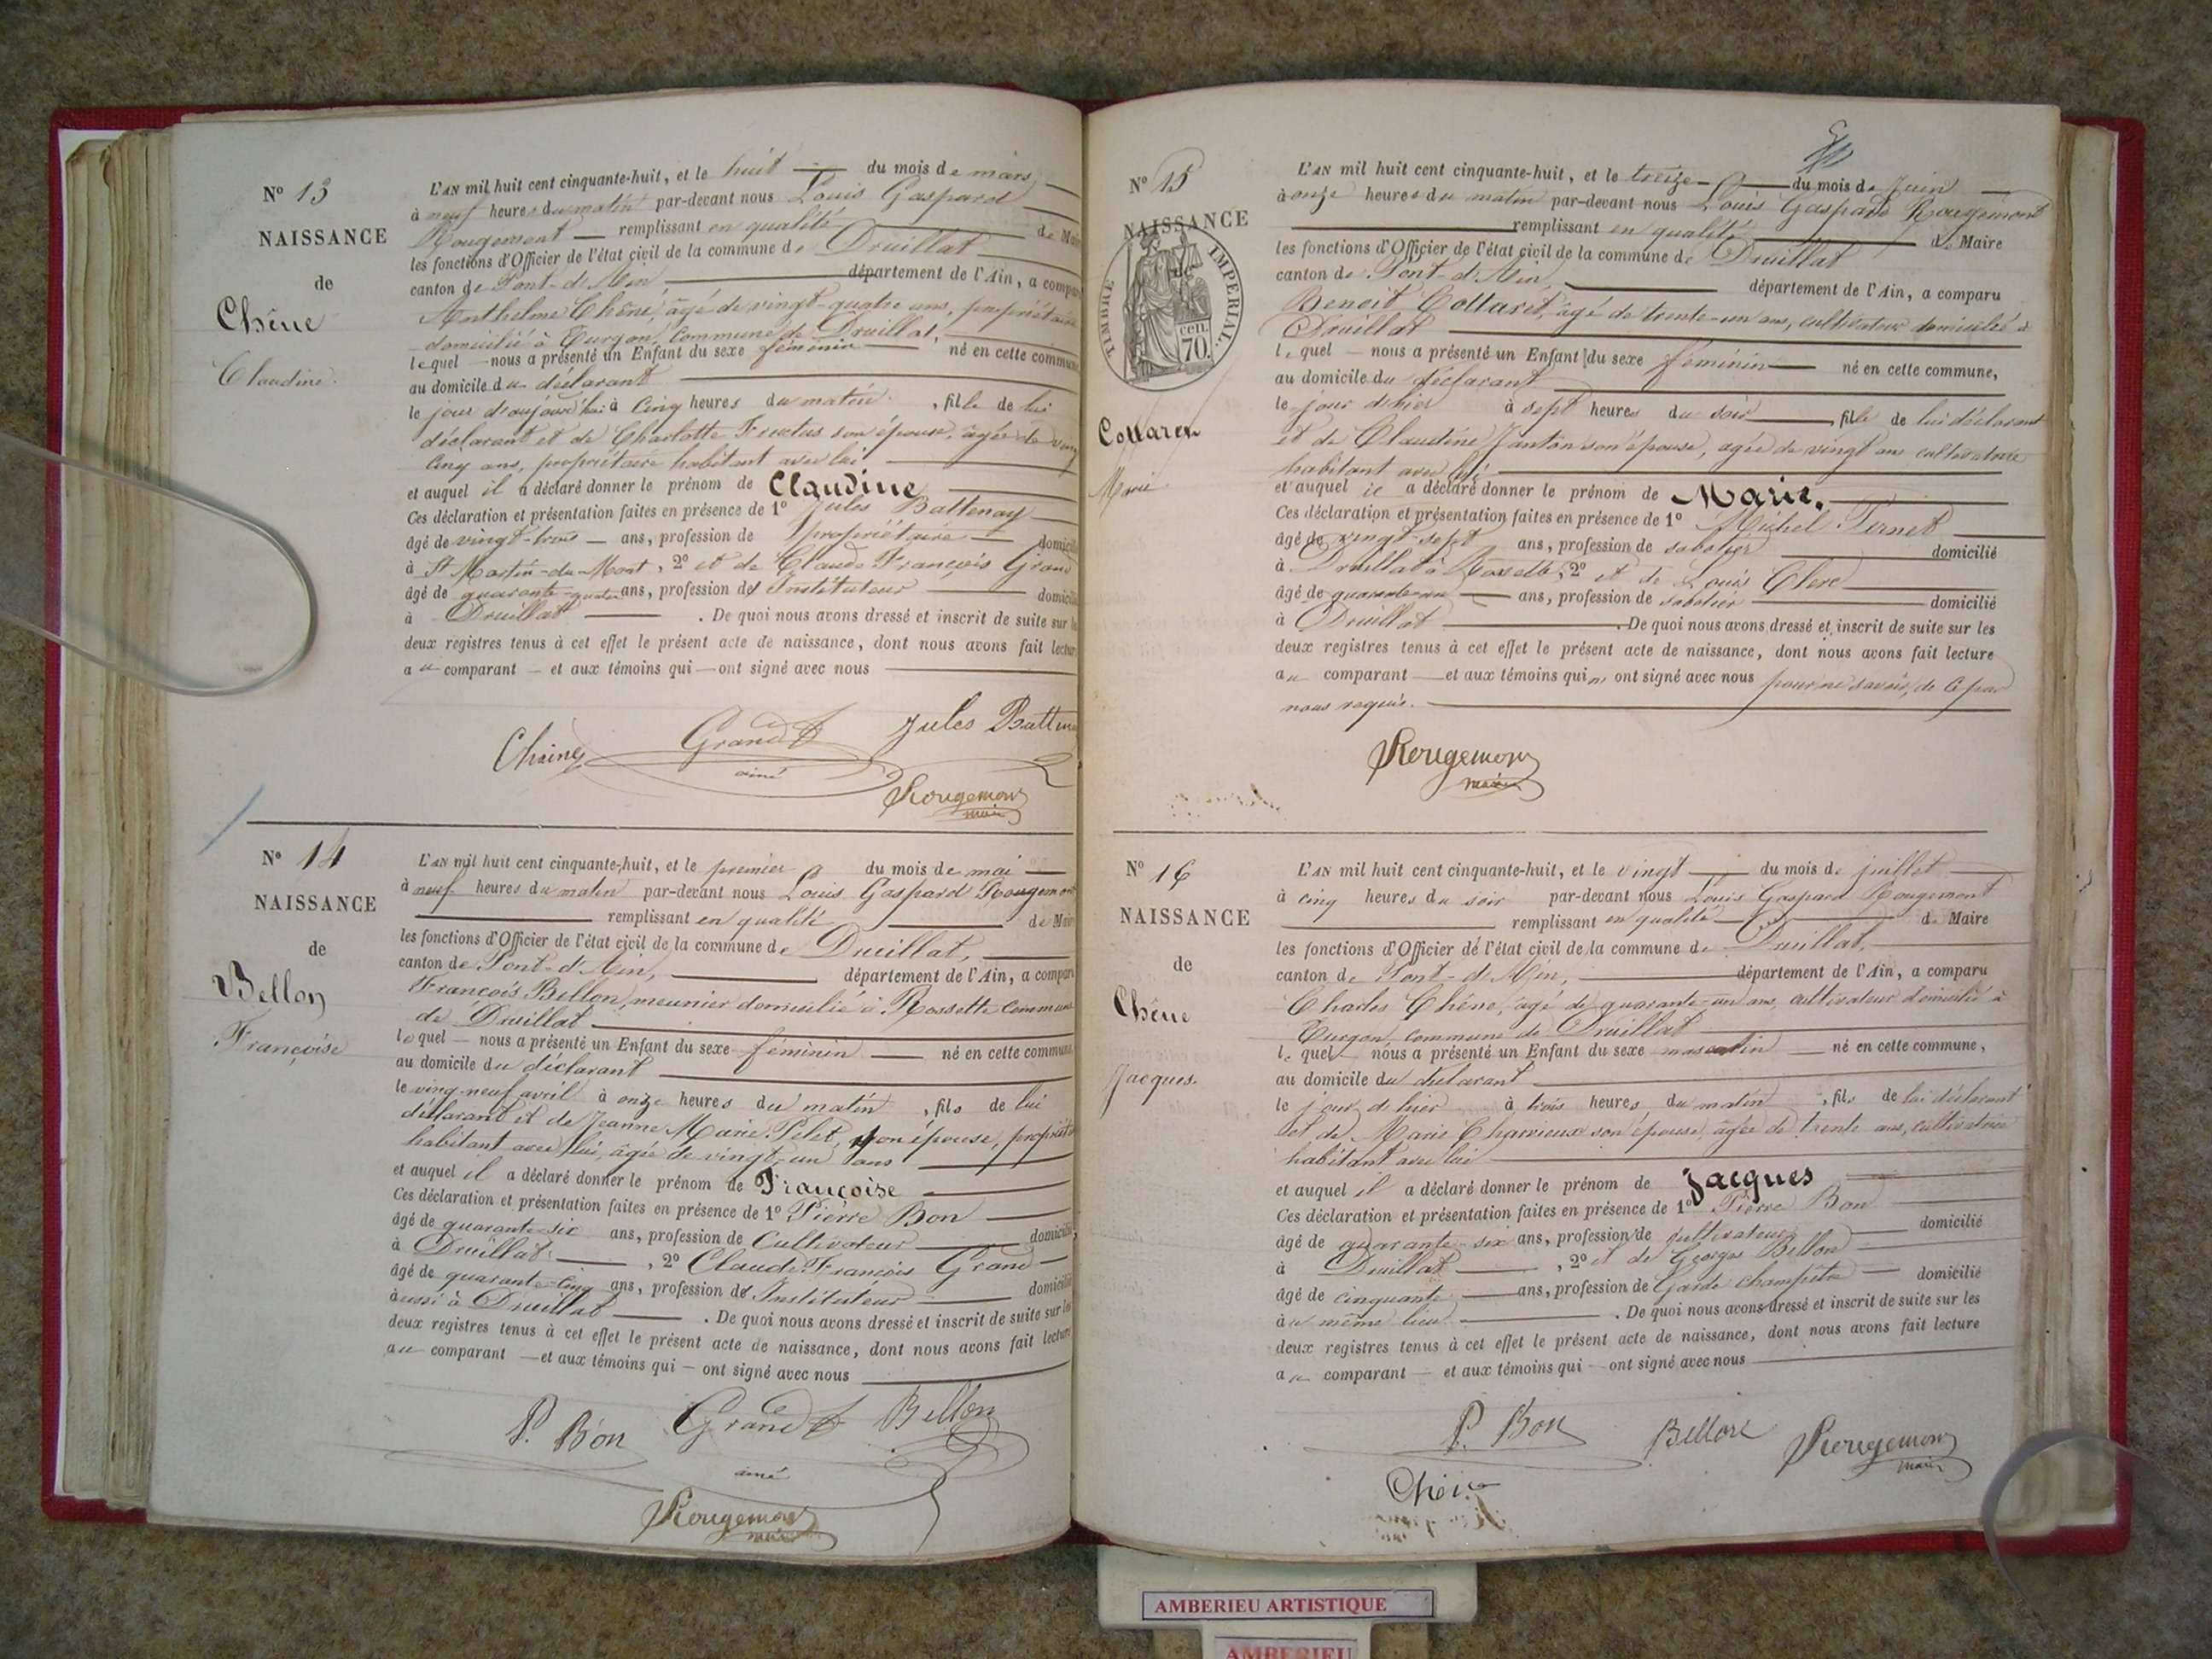 N° 13
NAISSANCE
de
Chêne
Claudine.
L'AN mil huit cent cinquante-huit, et le huit du mois de mars
à neuf heures du matin par-devant nous Louis Gaspard
Rougemont remplissant en qualité de Mai
les fonctions d'Officier de l'état civil de la commune de Druillat
canton de Pont-d'Ain département de l'Ain, a compa
Anthelme Chêne, âgé de vingt-quatre ans, propriétaire
domicilié à Turgon, commune de Druillat,
lequel nous a présenté un Enfant du sexe féminin né en cette commun
au domicile du déclarant
le jour d'aujourd'hui à cinq heures du matin, fille de lui
déclarant et de Charlotte Fructus son épouse, âgée de vingt
cinq ans, propriétaire habitant avec lui
et auquel il a déclaré donner le prénom de Claudine
Ces déclaration et présentation faites en présence de 1° Jules Battenay
âgé de vingt-trois ans, profession de propriétaire domicili
à St Martin-du-Mont, 2° et de Claude François Grand
âgé de quarante-quatre ans, profession de Instituteur domici
à Druillat. De quoi nous avons dressé et inscrit de suite sur
deux registres tenus à cet effet le présent acte de naissance, dont nous avons fait lectur
au comparant et aux témoins qui ont signé avec nous
Chaine Grand aîné Jules Batten
Rougemont
maire
N° 14
NAISSANCE
de
Bellon
Françoise
L'AN mil huit cent cinquante-huit, et le premier du mois de mai
à neuf heures du matin par-devant nous Louis Gaspard Rougemont
remplissant en qualité de Mai
les fonctions d'Officier de l'état civil de la commune de Druillat,
canton de Pont-d'Ain, département de l'Ain, a compar
François Bellon, meunier domicilié à Rossette commune
de Druillat
lequel nous a présenté un Enfant du sexe féminin né en cette commun
au domicile du déclarant
le ving-neuf avril à onze heures du matin, fils de lui
déclarant et de Jeanne Marie Pelet, son épouse, propriét
habitant avec lui, âgée de vingt-un ans
et auquel il a déclaré donner le prénom de Françoise
Ces déclaration et présentation faites en présence de 1° Pierre Bon
âgé de quarante-six ans, profession de Cultivateur domicilié
à Druillat, 2° Claude François Grand
âgé de quarante-cinq ans, profession de Instituteur domicilié
aussi à Druillat. De quoi nous avons dressé et inscrit de suite sur les
deux registres tenus à cet effet le présent acte de naissance, dont nous avons fait lecture
au comparant et aux témoins qui ont signé avec nous
P. Bon Grand Bellon
aîné
Rougemont
maire
N° 15
NAISSANCE
de
TIMBRE IMPÉRIAL.
cen.
70.
Collaret
Marie
L'AN mil huit cent cinquante-huit, et le treize du mois de Juin
à onze heures du matin par-devant nous Louis Gaspard Rougemont
remplissant en qualité de Maire
les fonctions d'Officier de l'état civil de la commune de Druillat
canton de Pont-d'Ain, département de l'Ain, a comparu
Benoit Collaret, âgé de trente-un ans, cultivateur domicilié à
Druillat
lequel nous a présenté un Enfant du sexe féminin né en cette commune,
au domicile du déclarant
le jour d'hier à sept heures du soir, fille de lui déclarant
et de Claudine Janton son épouse, âgée de vingt ans cultivatrice
habitant avec lui
et auquel il a déclaré donner le prénom de Marie.
Ces déclaration et présentation faites en présence de 1° Michel Pernet
âgé de vingt-sept ans, profession de sabotier domicilié
à Druillat à Rossette, 2° et de Louis Clerc
âgé de quarante-un ans, profession de sabotier domicilié
à Druillat. De quoi nous avons dressé et inscrit de suite sur les
deux registres tenus à cet effet le présent acte de naissance, dont nous avons fait lecture
au comparant et aux témoins qui n'ont signé avec nous pour ne savoir, de ce par
nous requis.
Rougemont
maire
N° 16
NAISSANCE
de
Chêne
Jacques.
L'AN mil huit cent cinquante-huit, et le vingt du mois de juillet
à cinq heures du soir par-devant nous Louis Gaspard Rougemont
remplissant en qualité de Maire
les fonctions d'Officier de l'état civil de la commune de Druillat,
canton de Pont-d'Ain, département de l'Ain, a comparu
Charles Chêne, âgé de quarante-un ans, cultivateur domicilié à
Turgon commune de Druillat
lequel nous a présenté un Enfant du sexe masculin né en cette commune,
au domicile du déclarant
le jour d'hier à trois heures du matin, fils de lui déclarant
et de Marie Charvieux son épouse, âgée de trente ans, cultivatrice
habitant avec lui
et auquel il a déclaré donner le prénom de Jacques
Ces déclaration et présentation faites en présence de 1° Pierre Bon
âgé de quarante-six ans, profession de cultivateur domicilié
à Druillat, 2° et de Georges Bellon
âgé de cinquante ans, profession de Garde champêtre domicilié
au même lieu. De quoi nous avons dressé et inscrit de suite sur les
deux registres tenus à cet effet le présent acte de naissance, dont nous avons fait lecture
au comparant et aux témoins qui ont signé avec nous
P. Bon Bellon Rougemont
maire
AMBERIEU ARTISTIQUE
AMBERIEU